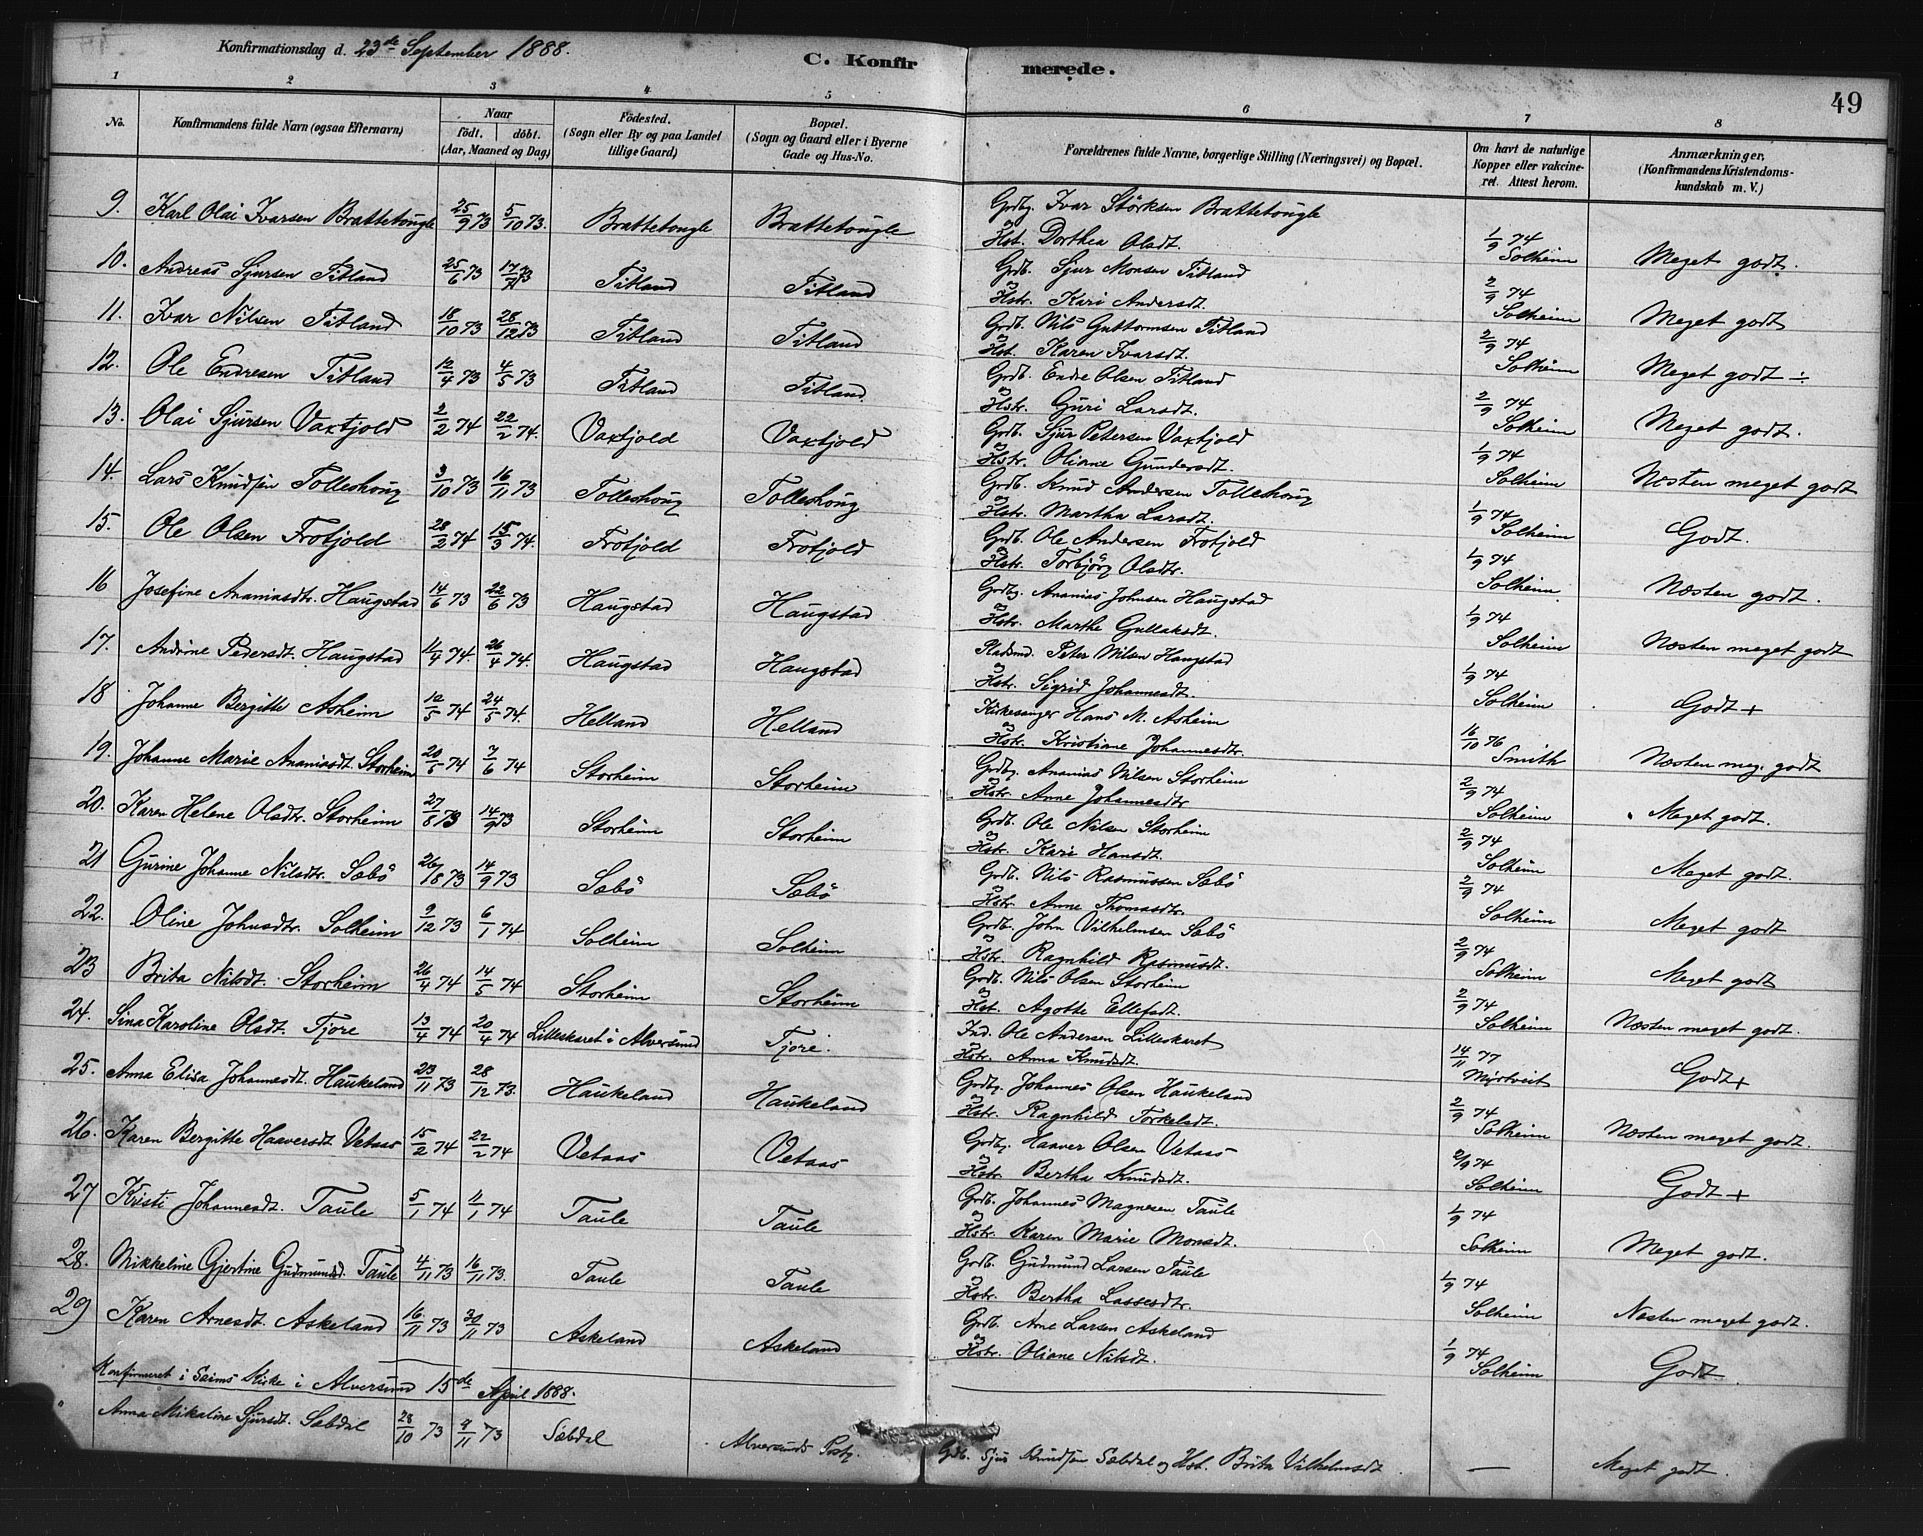 Konfirmationsdag d. 23de September 1888.
C. Konfirmerede.
49
1 2 3 4 5 6 7 8
No. Konfirmandens fulde Navn (ogsaa Efternavn) Naar födt. döbt. (Aar, Maaned og Dag) Födested. (Sogn eller By og paa Landet tillige Gaard) Bopæl. (Sogn og Gaard eller i Byerne Gade og Hus-No. Forældrenes fulde Navne, borgerlige Stilling (Næringsvei) og Bopæl. Om havt de naturlige Kopper eller vakcineret. Attest herom. Anmærkninger, (Konfirmandens Kristendomskundskab m. V.)
9. Karl Olai Ivarsen Brattetougle 25/9 73 5/10 73. Brattetougle Brattetougle Grdbg. Ivar Störksen Brattetougle
og Hst. Dorthea Olsdt. 1/9 74 Solheim Meget godt.
10. Andreas Sjursen Titland 25/6 73 Titland Titland Grdb. Sjur Monsen Titland
og Hstr. Kari Andersdt. 2/9 74 Solheim Meget godt
11. Ivar Nilsen Titland 18/10 73 28/12 73 Titland Titland Grdb. Nils Guttormsen Titland
og Hst. Karen Ivarsdt. 2/9 74 Solheim Meget godt ÷
12. Ole Endresen Titland 12/4 73 4/5 73 Titland Titland Grdb. Endre Olsen Titland
og Hstr. Guri Larsdt. 2/9 74 Solheim Meget godt.
13. Olai Sjursen Vaxtjold 2/2 74 22/2 74. Vaxtjold Vaxtjold Grdb. Sjur Petersen Vaxtjold
og Hstr. Oliane Gundersdt. 1/9 74 Solheim Næsten meget godt
14. Lars Knudsen Tolleshoug 3/10 73 16/11 73 Tolleshoug Tolleshoug Grdb. Knud Andersen Tolleshoug
og Hstr. Martha Larsdt. 1/9 74 Solheim Godt.
15. Ole Olsen Frotjold 28/2 74 15/3 74. Frotjold Frotjold Grdb. Ole Andersen Frotjold
og Hstr. Torbjörg Olsdtr. 1/9 74 Solheim Næsten godt.
16 Josefine Ananiasdtr. Haugstad 14/6 73 22/6 73 Haugstad Haugstad Grdbg. Ananias Johnsen Haugstad
og Hstr. Marthe Gullaksdt. 1/9 74 Solheim Næsten meget godt
17. Andrine Pedersdt. Haugstad 11/4 74. 26/4 74. Haugstad Haugstad Pladsmd. Peter Nilsen Haugstad
og Hstr. Sigrid Johannesdt. 1/9 74 Solheim Godt +
18 Johanne Bergitte Asheim 12/5 74 24/5 74. Helland Helland Kirkesanger Hans M. Asheim
og Hstr. Kristiane Johannesdtr. 16/10 76 Smith Næsten meg. godt
19. Johanne Marie Ananiasdt. Storheim 20/5 74 7/6 74 Storheim Storheim Grdbg. Ananias Nilsen Storheim
og Hstr. Anne Johannesdtr 2/9 74 Solheim Meget godt.
20. Karen Helene Olsdtr. Storheim 27/8 73 14/9 73 Storheim Storheim Grdb. Ole Nilsen Storheim
og Hstr. Kari Hansdt. 2/9 74 Solheim Meget godt.
21 Gurine Johanne Nilsdtr. Sæbö 26/8 73 14/9 73 Sæbö Sæbö Grdb. Nils Rasmussen Sæbö
og Hstr. Anne Thomasdtr. 2/9 74 Solheim Meget godt
22. Oline Johnsdtr. Solheim 9/12 73 6/1 74 Solheim Solheim Grdb. John Vilhelmsen Sæbö
og Hstr. Ragnhild Rasmusdt. 2/9 74 Solheim Meget godt
23 Brita Nilsdt. Storheim 26/4 74 14/5 74 Storheim Storheim Grdb. Nils Olsen Storheim
og Hst. Agothe Ellefsdt. 2/9 74 Solheim Næsten meget godt.
24. Sina Karoline Olsdt. Tjore 13/4 74 20/4 74 Lilleskaret i Alversund Tjore. Ind. Ole Andersen Lilleskaret
Hstr. Anna Knudsdt. 14/11 77 Myrtveit Godt +
25. Anna Elisa Johannesdt. Haukeland 23/11 73 28/12 73. Haukeland Haukeland Grdbg. Johannes Olsen Haukeland
og Hstr. Ragnhild Torkelsdt. 2/9 74 Solheim Næsten meget godt.
26. Karen Bergitte Haaversdt. Vetaas 15/2 74 22/2 74 Vetaas Vetaas Grdbg. Haaver Olsen Vetaas
og Hstr. Bertha Knudsdt. 2/9 74 Solheim Godt +
27 Kristi Johannesdt. Taule 5/1 74 11/1 74 Taule Taule Grdb. Johannes Magnesen Taule
og Hstr. Karen Marie Monsdt. 1/9 74 Solheim Meget godt.
28. Mikkeline Gjertine Gudmundsd. Taule 4/11 73 16/11 73. Taule Taule Grdb. Gudmund Larsen Taule
og Hstr. Bertha Lassesdtr. 1/9 74 Solheim Næsten meget godt.
29 Karen Arnesdt. Askeland 16/11 73 30/11 73 Askeland Askeland Grdb. Arne Larsen Askeland
og Hstr. Oliane Nilsdt. 1/9 74 Solheim Godt
Konfirmeret i Seims Kirke i Alversund 15de April 1888.
" Anna Mikaline Sjursdt. Sæbdal 28/10 73 9/11 73 Sæbdal Alversunds Pgj. Gdb. Sjur Knudsen Sæbdal og Hst. Brita Vilhelmsdt — Meget godt.